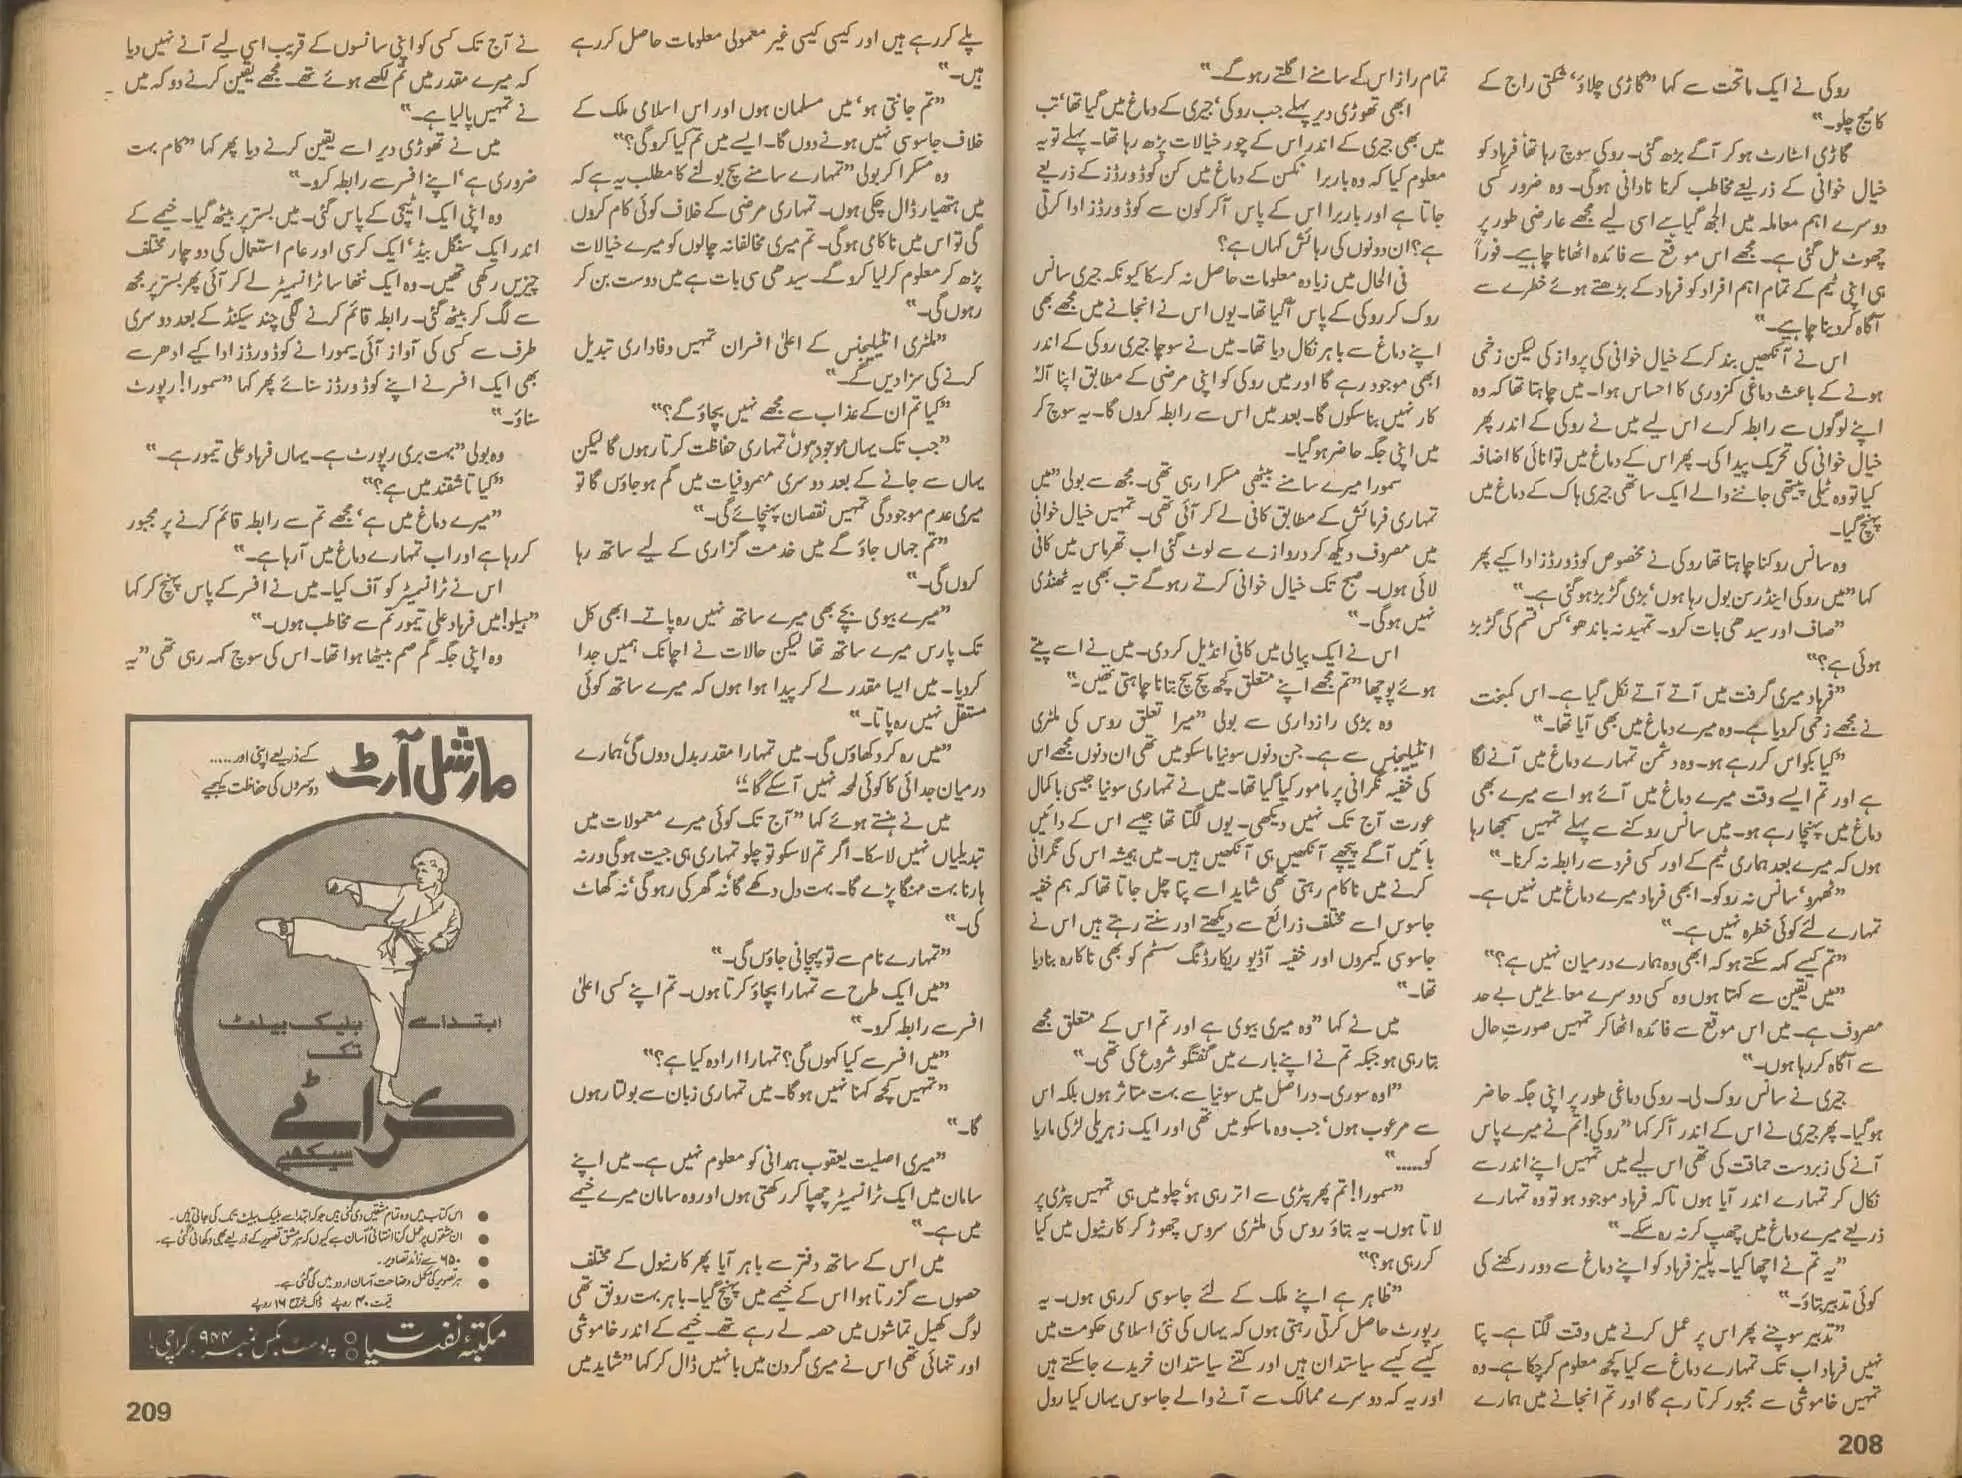 روکی نے ایک ماتحت سے کہا "گاڑی چلاؤ، شکتی راج کے
کاٹیج چلو۔"
گاڑی اسٹارٹ ہو کر آگے بڑھ گئی۔ روکی سوچ رہا تھا، فرہاد کو
خیال خوانی کے ذریعے مخاطب کرنا نادانی ہوگی۔ وہ ضرور کسی
دوسرے اہم معاملہ میں الجھ گیا ہے اسی لیے مجھے عارضی طور پر
چھوٹ مل گئی ہے۔ مجھے اس موقع سے فائدہ اٹھانا چاہیے۔ فوراً
ہی اپنی ٹیم کے تمام اہم افراد کو فرہاد کے بڑھتے ہوئے خطرے سے
آگاہ کردینا چاہیے۔"
اس نے آنکھیں بند کرکے خیال خوانی کی پرواز کی لیکن زخمی
ہونے کے باعث دماغی کمزوری کا احساس ہوا۔ میں چاہتا تھا کہ وہ
اپنے لوگوں سے رابطہ کرے اس لیے میں نے روکی کے اندر پھر
خیال خوانی کی تحریک پیدا کی۔ پھر اس کے دماغ میں توانائی کا اضافہ
کیا تو وہ ٹیلی پیتھی جاننے والے ایک ساتھی جیری ہاک کے دماغ میں
پہنچ گیا۔
وہ سانس روکنا چاہتا تھا روکی نے مخصوص کوڈ ورڈز ادا کیے پھر
کہا "میں روکی اینڈرسن بول رہا ہوں، بڑی گڑبڑ ہوگئی ہے۔"
"صاف اور سیدھی بات کرو۔ تمہید نہ باندھو، کس قسم کی گڑبڑ
ہوئی ہے؟"
"فرہاد میری گرفت میں آتے آتے نکل گیا ہے۔ اس کمبخت
نے مجھے زخمی کردیا ہے۔ وہ میرے دماغ میں بھی آیا تھا۔"
"کیا بکواس کر رہے ہو۔ وہ دشمن تمہارے دماغ میں آنے لگا
ہے اور تم ایسے وقت میرے دماغ میں آئے ہو اسے میرے بھی
دماغ میں پہنچا رہے ہو۔ میں سانس روکنے سے پہلے تمہیں سمجھا رہا
ہوں کہ میرے بعد ہماری ٹیم کے اور کسی فرد سے رابطہ نہ کرنا۔"
"ٹھہرو، سانس نہ روکو۔ ابھی فرہاد میرے دماغ میں نہیں ہے۔
تمہارے لئے کوئی خطرہ نہیں ہے۔"
"تم کیسے کہہ سکتے ہو کہ ابھی وہ ہمارے درمیان نہیں ہے؟"
"میں یقین سے کہتا ہوں وہ کسی دوسرے معاملے میں بے حد
مصروف ہے۔ میں اس موقع سے فائدہ اٹھا کر تمہیں صورتِ حال
سے آگاہ کر رہا ہوں۔"
جیری نے سانس روک لی۔ روکی دماغی طور پر اپنی جگہ حاضر
ہوگیا۔ پھر جیری نے اس کے اندر آکر کہا "روکی! تم نے میرے پاس
آنے کی زبردست حماقت کی تھی اس لیے میں تمہیں اپنے اندر سے
نکال کر تمہارے اندر آیا ہوں تاکہ فرہاد موجود ہو تو وہ تمہارے
ذریعے میرے دماغ میں چھپ کر نہ رہ سکے۔"
"یہ تم نے اچھا کیا۔ پلیز فرہاد کو اپنے دماغ سے دور رکھنے کی
کوئی تدبیر بتاؤ۔"
"تدبیر سوچنے پھر اس پر عمل کرنے میں وقت لگتا ہے۔ پتا
نہیں فرہاد اب تک تمہارے دماغ سے کیا کچھ معلوم کرچکا ہے۔ وہ
تمہیں خاموشی سے مجبور کرتا رہے گا اور تم انجانے میں ہمارے
208
تمام راز اس کے سامنے اگلتے رہو گے۔"
ابھی تھوڑی دیر پہلے جب روکی، جیری کے دماغ میں گیا تھا، تب
میں بھی جیری کے اندر اس کے چور خیالات پڑھ رہا تھا۔ پہلے تو یہ
معلوم کیا کہ وہ باربرا نکسن کے دماغ میں کن کوڈ ورڈز کے ذریعے
جاتا ہے اور باربرا اس کے پاس آکر کون سے کوڈ ورڈز ادا کرتی
ہے؟ ان دونوں کی رہائش کہاں ہے؟
فی الحال میں زیادہ معلومات حاصل نہ کرسکا کیونکہ جیری سانس
روک کر روکی کے پاس آگیا تھا۔ یوں اس نے انجانے میں مجھے بھی
اپنے دماغ سے باہر نکال دیا تھا۔ میں نے سوچا جیری روکی کے اندر
ابھی موجود رہے گا اور میں روکی کو اپنی مرضی کے مطابق اپنا آلہ
کار نہیں بنا سکوں گا۔ بعد میں اس سے رابطہ کروں گا۔ یہ سوچ کر
میں اپنی جگہ حاضر ہوگیا۔
سمورا میرے سامنے بیٹھی مسکرا رہی تھی۔ مجھ سے بولی "میں
تمہاری فرمائش کے مطابق کافی لے کر آئی تھی۔ تمہیں خیال خوانی
میں مصروف دیکھ کر دروازے سے لوٹ گئی اب تھرماس میں کافی
لائی ہوں۔ صبح تک خیال خوانی کرتے رہو گے تب بھی یہ ٹھنڈی
نہیں ہوگی۔"
اس نے ایک پیالی میں کافی انڈیل کر دی۔ میں نے اسے پیتے
ہوئے پوچھا "تم مجھے اپنے متعلق کچھ سچ سچ بتانا چاہتی تھیں۔"
وہ بڑی رازداری سے بولی "میرا تعلق روس کی ملٹری
انٹیلیجنس سے ہے۔ جن دنوں سونیا ماسکو میں تھی ان دنوں مجھے اس
کی خفیہ نگرانی پر مامور کیا گیا تھا۔ میں نے تمہاری سونیا جیسی باکمال
عورت آج تک نہیں دیکھی۔ یوں لگتا تھا جیسے اس کے دائیں
بائیں آگے پیچھے آنکھیں ہی آنکھیں ہیں۔ میں ہمیشہ اس کی نگرانی
کرنے میں ناکام رہتی تھی شاید اسے پتا چل جاتا تھا کہ ہم خفیہ
جاسوس اسے مختلف ذرائع سے دیکھتے اور سنتے رہتے ہیں اس نے
جاسوسی کیمروں اور خفیہ آڈیو ریکارڈنگ سسٹم کو بھی ناکارہ بنا دیا
تھا۔"
میں نے کہا "وہ میری بیوی ہے اور تم اس کے متعلق مجھے
بتا رہی ہو جبکہ تم نے اپنے بارے میں گفتگو شروع کی تھی۔"
"اوہ سوری۔ دراصل میں سونیا سے بہت متاثر ہوں بلکہ اس
سے مرعوب ہوں، جب وہ ماسکو میں تھی اور ایک زہریلی لڑکی ماریا
کو....."
"سمورا! تم پھر پٹڑی سے اتر رہی ہو، چلو میں ہی تمہیں پٹڑی پر
لاتا ہوں۔ یہ بتاؤ روس کی ملٹری سروس چھوڑ کر کارنیول میں کیا
کر رہی ہو؟"
"ظاہر ہے اپنے ملک کے لئے جاسوسی کر رہی ہوں۔ یہ
رپورٹ حاصل کرتی رہتی ہوں کہ یہاں کی نئی اسلامی حکومت میں
کیسے کیسے سیاستدان ہیں اور کتنے سیاستدان خریدے جا سکتے ہیں
اور یہ کہ دوسرے ممالک سے آنے والے جاسوس یہاں کیا رول
پلے کر رہے ہیں اور کیسی کیسی غیر معمولی معلومات حاصل کر رہے
ہیں۔"
"تم جانتی ہو، میں مسلمان ہوں اور اس اسلامی ملک کے
خلاف جاسوسی نہیں ہونے دوں گا۔ ایسے میں تم کیا کرو گی؟"
وہ مسکرا کر بولی "تمہارے سامنے سچ بولنے کا مطلب یہ ہے کہ
میں ہتھیار ڈال چکی ہوں۔ تمہاری مرضی کے خلاف کوئی کام کروں
گی تو اس میں ناکامی ہوگی۔ تم میری مخالفانہ چالوں کو میرے خیالات
پڑھ کر معلوم کر لیا کرو گے۔ سیدھی سی بات ہے میں دوست بن کر
رہوں گی۔"
"ملٹری انٹیلیجنس کے اعلیٰ افسران تمہیں وفاداری تبدیل
کرنے کی سزا دیں گے۔"
"کیا تم ان کے عذاب سے مجھے نہیں بچاؤ گے؟"
"جب تک یہاں موجود ہوں، تمہاری حفاظت کرتا رہوں گا لیکن
یہاں سے جانے کے بعد دوسری مصروفیات میں گم ہوجاؤں گا تو
میری عدم موجودگی تمہیں نقصان پہنچائے گی۔"
"تم جہاں جاؤ گے میں خدمت گزاری کے لیے ساتھ رہا
کروں گی۔"
"میرے بیوی بچے بھی میرے ساتھ نہیں رہ پاتے۔ ابھی کل
تک پارس میرے ساتھ تھا لیکن حالات نے اچانک ہمیں جدا
کردیا۔ میں ایسا مقدر لے کر پیدا ہوا ہوں کہ میرے ساتھ کوئی
مستقل نہیں رہ پاتا۔"
"میں رہ کر دکھاؤں گی۔ میں تمہارا مقدر بدل دوں گی، ہمارے
درمیان جدائی کا کوئی لمحہ نہیں آسکے گا۔"
میں نے ہنستے ہوئے کہا "آج تک کوئی میرے معمولات میں
تبدیلیاں نہیں لاسکا۔ اگر تم لاسکو تو چلو تمہاری ہی جیت ہوگی ورنہ
ہارنا بہت مہنگا پڑے گا۔ بہت دل دکھے گا، نہ گھر کی رہو گی، نہ گھاٹ
کی۔"
"تمہارے نام سے تو پہچانی جاؤں گی۔"
"میں ایک طرح سے تمہارا بچاؤ کرتا ہوں۔ تم اپنے کسی اعلیٰ
افسر سے رابطہ کرو۔"
"میں افسر سے کیا کہوں گی؟ تمہارا ارادہ کیا ہے؟"
"تمہیں کچھ کہنا نہیں ہوگا۔ میں تمہاری زبان سے بولتا رہوں
گا۔"
"میری اصلیت یعقوب ہمدانی کو معلوم نہیں ہے۔ میں اپنے
سامان میں ایک ٹرانسمیٹر چھپا کر رکھتی ہوں اور وہ سامان میرے خیمے
میں ہے۔"
میں اس کے ساتھ دفتر سے باہر آیا پھر کارنیول کے مختلف
حصوں سے گزرتا ہوا اس کے خیمے میں پہنچ گیا۔ باہر بہت رونق تھی
لوگ کھیل تماشوں میں حصہ لے رہے تھے۔ خیمے کے اندر خاموشی
اور تنہائی تھی اس نے میری گردن میں بانہیں ڈال کر کہا "شاید میں
نے آج تک کسی کو اپنی سانسوں کے قریب اسی لیے آنے نہیں دیا
کہ میرے مقدر میں تم لکھے ہوئے تھے۔ مجھے یقین کرنے دو کہ میں
نے تمہیں پالیا ہے۔"
میں نے تھوڑی دیر اسے یقین کرنے دیا پھر کہا "کام بہت
ضروری ہے، اپنے افسر سے رابطہ کرو۔"
وہ اپنی ایک اٹیچی کے پاس گئی۔ میں بستر پر بیٹھ گیا۔ خیمے کے
اندر ایک سنگل بیڈ، ایک کرسی اور عام استعمال کی دو چار مختلف
چیزیں رکھی تھیں۔ وہ ایک ننھا سا ٹرانسمیٹر لے کر آئی پھر بستر پر مجھ
سے لگ کر بیٹھ گئی۔ رابطہ قائم کرنے لگی چند سیکنڈ کے بعد دوسری
طرف سے کسی کی آواز آئی۔ سمورا نے کوڈ ورڈز ادا کیے ادھر سے
بھی ایک افسر نے اپنے کوڈ ورڈز سنائے پھر کہا "سمورا! رپورٹ
سناؤ۔"
وہ بولی "بہت بری رپورٹ ہے۔ یہاں فرہاد علی تیمور ہے۔"
"کیا تاشقند میں ہے؟"
"میرے دماغ میں ہے، مجھے تم سے رابطہ قائم کرنے پر مجبور
کر رہا ہے اور اب تمہارے دماغ میں آرہا ہے۔"
اس نے ٹرانسمیٹر کو آف کیا۔ میں نے افسر کے پاس پہنچ کر کہا
"ہیلو! میں فرہاد علی تیمور تم سے مخاطب ہوں۔"
وہ اپنی جگہ گم صم بیٹھا ہوا تھا۔ اس کی سوچ کہہ رہی تھی "یہ
مارشل آرٹ
کے ذریعے اپنی اور.....
دوسروں کی حفاظت کیجیے
ابتدا سے بلیک بیلٹ
تک
کراٹے
سیکھیے
● اس کتاب میں وہ تمام مشقیں دی گئی ہیں جو کہ ابتدا سے بلیک بیلٹ تک کی جاتی ہیں۔
● ان مشقوں پر عمل کرنا انتہائی آسان ہے کیوں کہ ہر مشق تصویر کے ذریعے بھی دکھائی گئی ہے۔
● ۶۵۰ سے زائد تصاویر۔
● ہر تصویر کی مکمل وضاحت آسان اردو میں کی گئی ہے۔
قیمت ۴۰ روپے ڈاک خرچ ۱۶ روپے
مکتبہ نفسیات: پوسٹ بکس نمبر ۹۴۴ کراچی ۱
209